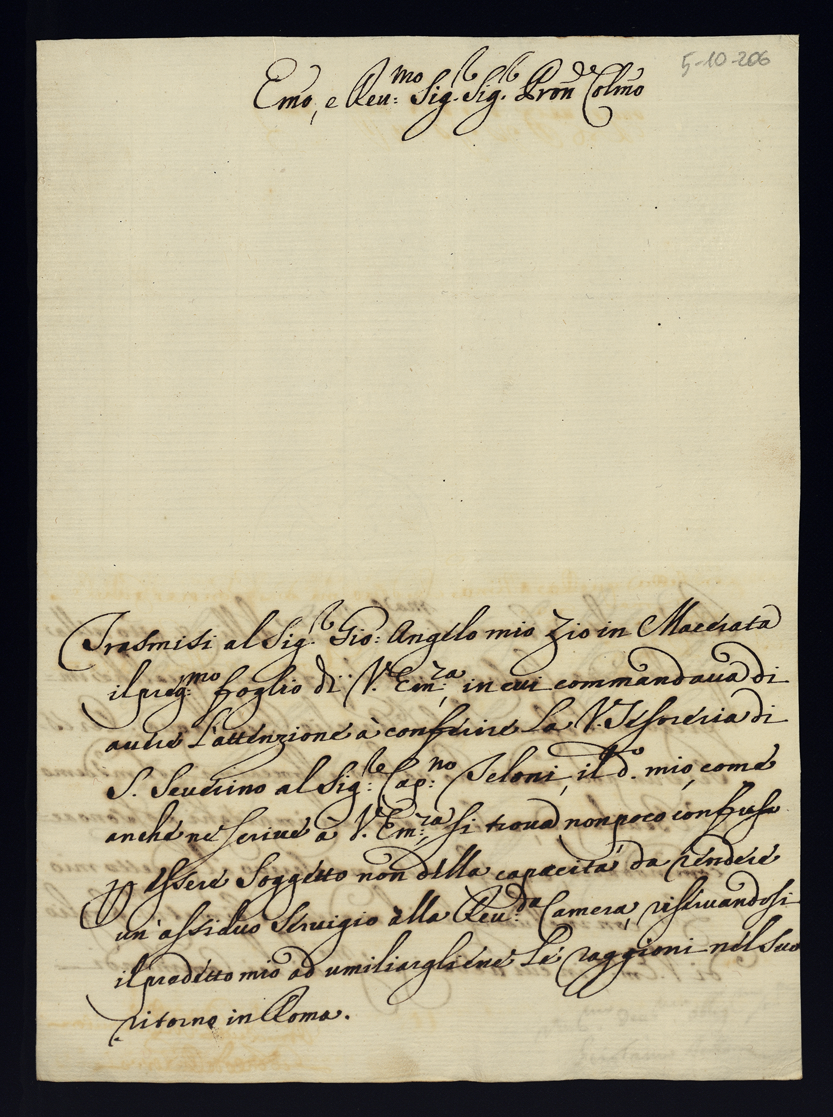 5-10-206
Emo, e Reu:mo Sig.r Sig.r Pron Colmo
Trasmisi al Sig.r Gio: Angelo mio Zio in Macerata
il preg:mo foglio di V. Em:za in cui commandaua di
auere L'attenzione à conferire La V. Tesoreria di
S. Seuerino al Sig:re Cap:no Teloni, il d.o mio, come
anche ne scriue à V. Em:za si troua non poco confuso
p essere Soggetto non della capacità da rendere
un' assiduo Seruigio alla Reu:da Camera, riseruandosi
il predetto mio ad umiliargliene Le raggioni nel suo
ritorno in Roma.